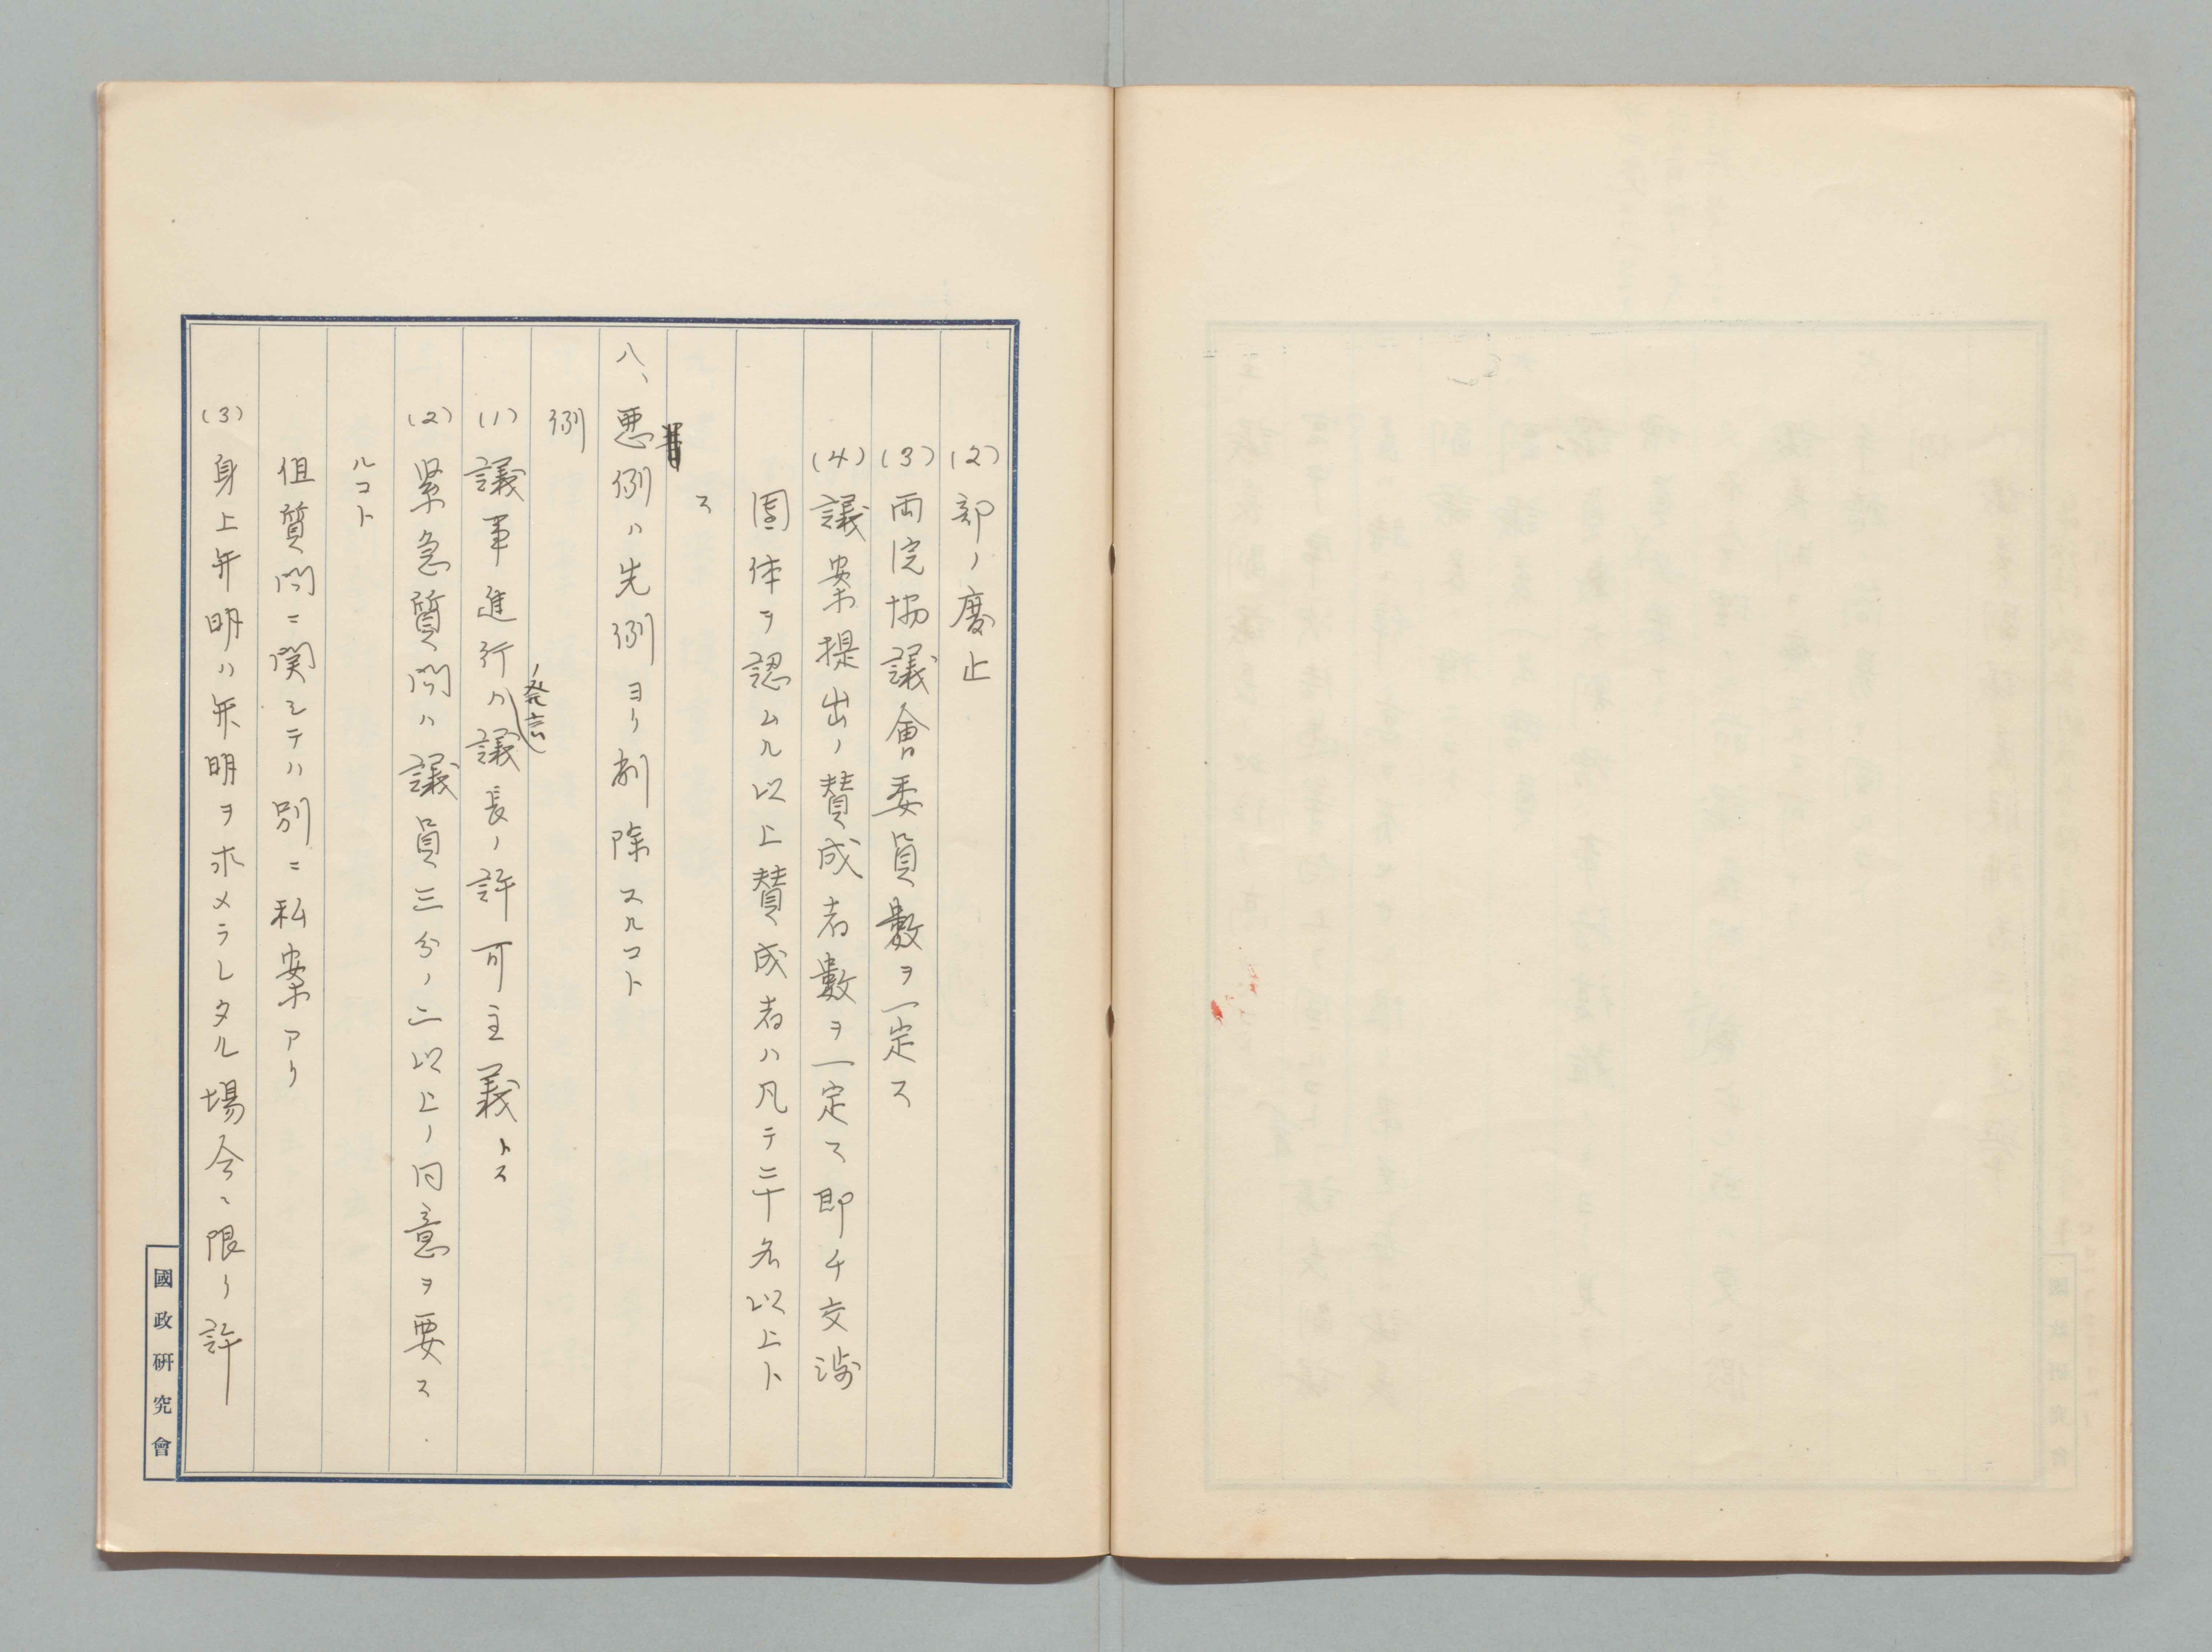 (2)部ノ廃止
(3)両院協議會委員數ヲ一定ス
(4)議案提出ノ賛成者數ヲ一定ス即チ交渉
団体ヲ認ムル以上賛成者ハ凡テ三十名以上ト
ス
八、悪例ハ先例ヨリ削除スルコト
例
(1)議事進行ノ発言ハ議長ノ許可主義トス
(2)緊急質問ハ議員三分ノ二以上ノ同意ヲ要ス
ルコト
但質問ニ関シテハ別ニ私案アリ
(3)身上弁明ハ弁明ヲ求メラレタル場合ニ限リ許
國政研究會